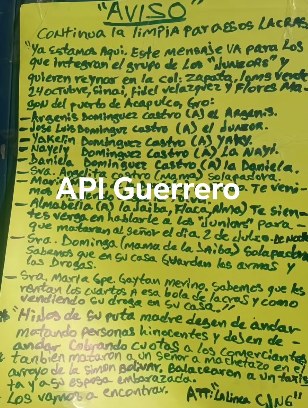 "AVISO"
CONTINUA la LIMPIA PARA ESOS LACRAS
"Ya Estamos Aqui. Este mensaje VA PARA los
que integran el grupo de Los "JUNEORS" y
quieren reynar en la Col: Zapata,
24 octubre, Sinai, Fidel velazquez y Flores Ma-
GON del puerto de Acapulco, Gro:
- Argenis Dominguez Castro (A) el Argenis.
- Jose Luis Dominguez Castro (A) el JUNEOR.
- YAKELIN Dominguez Castro (A) YAKY.
- Nayeli Dominguez Castro (A) LA NAYI.
- Daniela Dominguez Castro (A) la Daniela.
- Sra. Angelita Castro (mama) Solapadora.
API Guerrero
- Almabelia (A) la Saiba, Flaca, Te sien-
tes verga en hablarle a los "Juniors" para
que mataran al señor el dia 2 de Julio.
- Sra. Dominga (mama de la Saiba) Solapadora
Sabemos que en su casa Guardan las armas y
las Drogas.
- Sra. Maria Gpe. Gaytan merino. Sabemos que les
rentan los cuartos a esa bola de lacras y como
vendiendo su droga en su casa.."
* "Hijos de su puta madre dejen de andar
matando personas hinocentes y dejen de
andar Cobrando cuotas a los comerciantes
* tanbien mataron a un señor a machetazo en el
arroyo de la Simon Bolivar. Balacearon a un taxis
ta y a su esposa embarazada.
Los vamos a encontrar. ATT: "La linea CJNG"